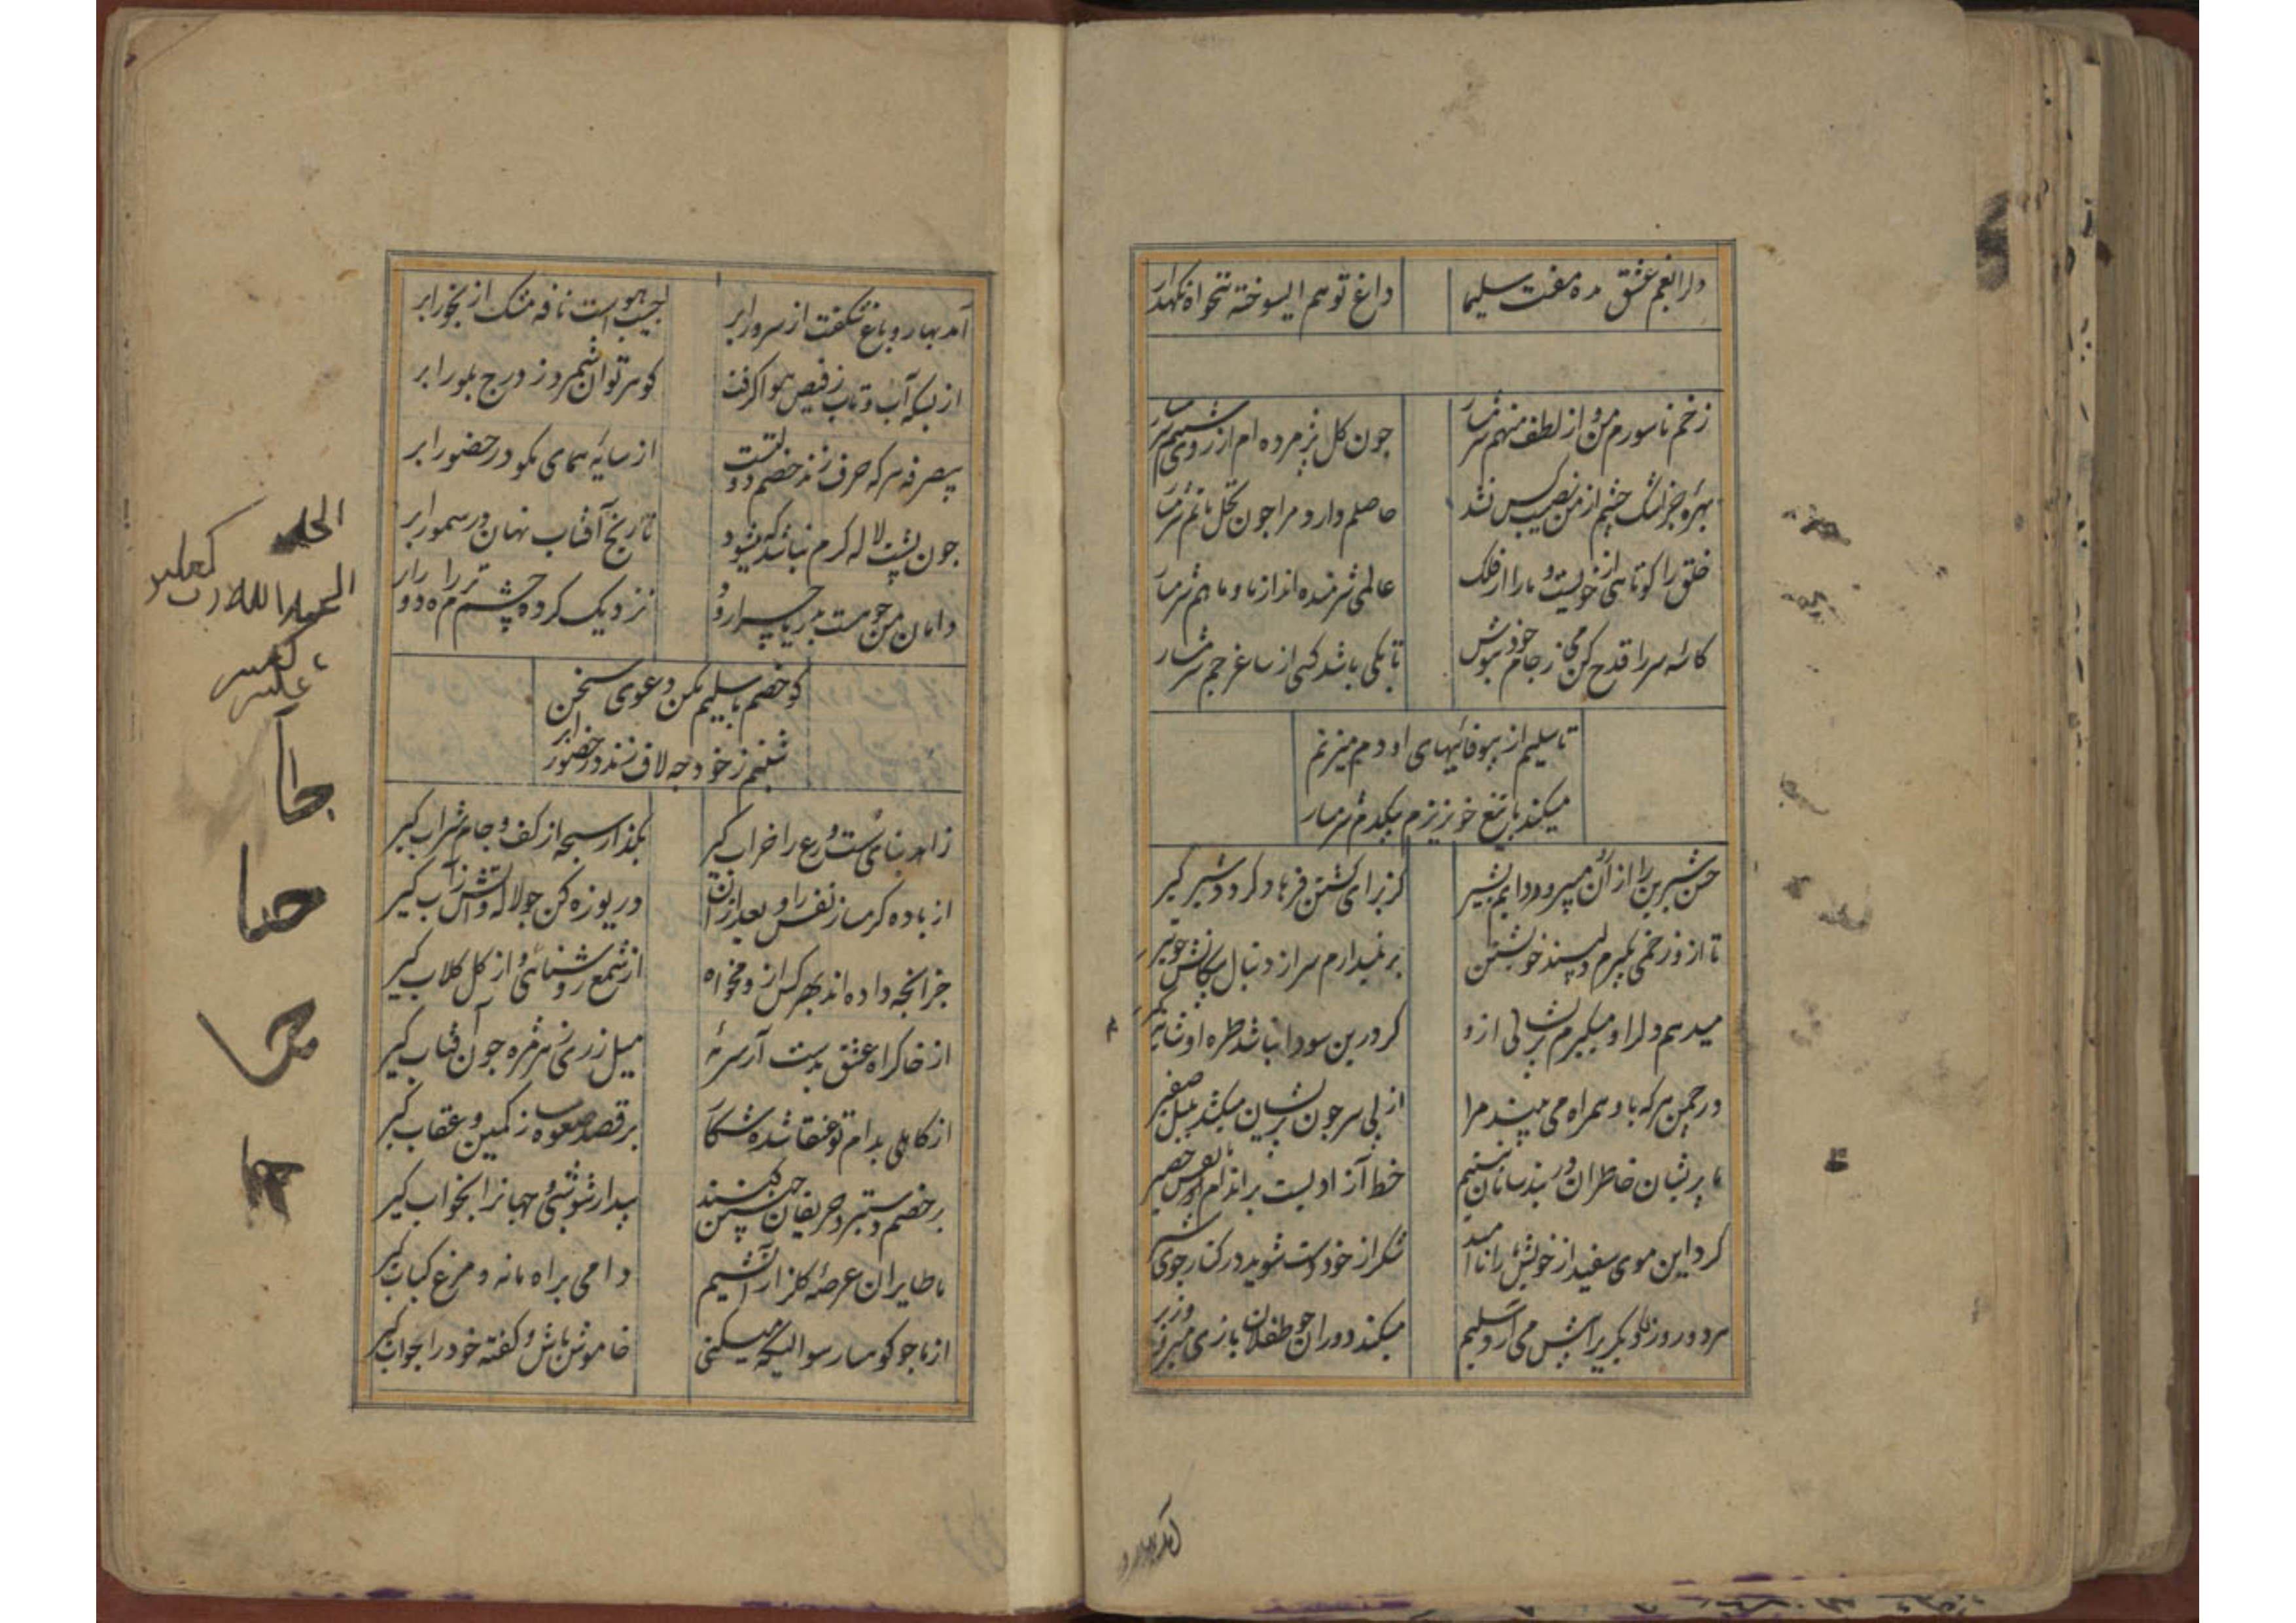 دلرا بغم عشق مده مفت سلیما
داغ تو هم ایسوخته تنخواه نکهدار
زخم ناسورم من و از لطف منهم شرمسار
چون کل پژمرده ام از روی شبنم شرمسار
بهرهٔ جز اشک چشم از من نصیب کس نشد
حاصلم دارد مرا چون نخل ماتم شرمسار
خلق را کوتاهی از خویست و ما را از فلک
عالمی شرمنده اند از ما و ما هم شرمسار
کاسهٔ سر را قدح کن می ز جام خود بنوش
تا بکی باشد کسی از ساغر جم شرمسار
تا سلیم از بیوفائیهای او دم میزنم
میکند با تیغ خونریزم بیکدم شرمسار
حسن شیرین را از آن میپرورد دایم بشیر
کز برای کشتن فرهاد کردد شیر کیر
تا ازو زخمی بکیرم دلپسند خویشتن
بر نمیدارم سر از دنبال پیکانش چو تیر
میدهم دلرا و میکیرم پریشانی ازو
کر درین سودا نباشد طرهٔ او شانه کیر
در چمن هر که با او همراه می بیند مرا
از پی سر چون پریشان میکشد بلبل صفیر
ما پریشان خاطران در بند سامان نیستیم
خط آزادیست بر اندام ما نقش حصیر
کرد این موی سفید از خویش ما را ناامید
شکر از خود دست شوید در کنار جوی شیر
مرد و روز دیکر پیش می آرد سلیم
میکند دوران چو طفلان بازی میر و وزیر
آمد بهار و
آمد بهار و باغ شکفت از سرور ابر
جیب هواست نافه مشک از بخور ابر
از بسکه آب و تاب ز فیض هوا کرفت
کوهر توان شمرد ز درج بلور ابر
بیصرفه هر که حرف زند خصم دولتست
از سایهٔ همای مکو در حضور ابر
چون پشت لاله کرم نباشد که میشود
تاریخ آفتاب نهان در سمور ابر
دامان من چو هست بدریا چرا رود
نزدیک کرده چشم ترم راه دور ابر
کو خصم با سلیم مکن دعوی سخن
شبنم ز خود چه لاف زند در حضور ابر
زاهد بنای سست ورع را خراب کیر
بکذار سبحه از کف و جام شراب کیر
از باده کرم ساز نفس را و بعد از آن
دریوزه کن چو لاله و آتش ز آب کیر
جز آنچه داده اند بهر کس ازو مخواه
از شمع روشنائی و از کل کلاب کیر
از خاک راه عشق بدست آر سرمهٔ
میل زری ز هر مژه چون آفتاب کیر
از کاهلی بدام تو عنقا شده شکار
بر قصد صعوه ز کمین عقاب کیر
بر خصم دستبرد حریفان چنین کنند
بیدار شو شبی و جهانرا بخواب کیر
ما طایران عرصهٔ کلزار آتشیم
دامی براه ما نه و مرغ کباب کیر
از ما چو کوهسار سوالیکه میکنی
خاموش باش و کفته خود را جواب کیر
الحمد
الحمد لله رب